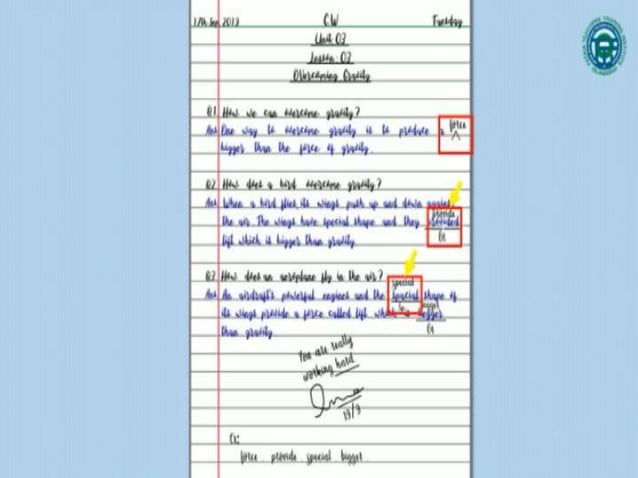 17th Sep, 2019 C.W Tuesday
Unit 03
Lesson: 02
Overcoming Gravity
Q1 How we can overcome gravity?
Ans One way to overcome gravity is to produce a force
bigger than the force of gravity.
Q2 How does a bird overcome gravity?
Ans When a bird flies, its wings push up and down against
the air. The wings have special shape and they provide
lift which is bigger than gravity.
Q3 How does an aeroplane fly in the air?
special
Ans An aircraft's powerful engines and the shape of
its wings provide a force called lift which is
than gravity.
You are really
working hard
19/9
force provide special bigger